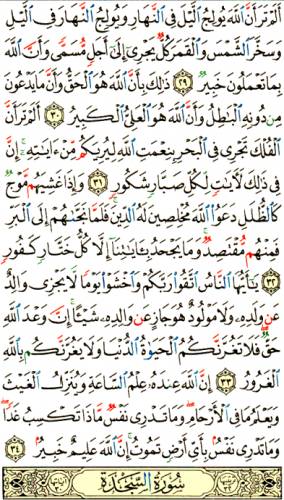 أَلَمْ تَرَ أَنَّ ٱللَّهَ يُولِجُ ٱلَّيْلَ فِي ٱلنَّهَارِ وَيُولِجُ ٱلنَّهَارَ فِي ٱلَّيْلِ
وَسَخَّرَ ٱلشَّمْسَ وَٱلْقَمَرَ كُلٌّ يَجْرِي إِلَىٰ أَجَلٍ مُّسَمًّى وَأَنَّ ٱللَّهَ
بِمَا تَعْمَلُونَ خَبِيرٌ ٢٩ ذَٰلِكَ بِأَنَّ ٱللَّهَ هُوَ ٱلْحَقُّ وَأَنَّ مَا يَدْعُونَ
مِن دُونِهِ ٱلْبَٰطِلُ وَأَنَّ ٱللَّهَ هُوَ ٱلْعَلِيُّ ٱلْكَبِيرُ ٣٠ أَلَمْ تَرَ أَنَّ
ٱلْفُلْكَ تَجْرِي فِي ٱلْبَحْرِ بِنِعْمَتِ ٱللَّهِ لِيُرِيَكُم مِّنْ ءَايَٰتِهِۦٓ إِنَّ
فِي ذَٰلِكَ لَءَايَٰتٍ لِّكُلِّ صَبَّارٍ شَكُورٍ ٣١ وَإِذَا غَشِيَهُم مَّوْجٌ
كَٱلظُّلَلِ دَعَوُا۟ ٱللَّهَ مُخْلِصِينَ لَهُ ٱلدِّينَ فَلَمَّا نَجَّىٰهُمْ إِلَى ٱلْبَرِّ
فَمِنْهُم مُّقْتَصِدٌ وَمَا يَجْحَدُ بِـَٔايَٰتِنَآ إِلَّا كُلُّ خَتَّارٍ كَفُورٍ
٣٢ يَٰٓأَيُّهَا ٱلنَّاسُ ٱتَّقُوا۟ رَبَّكُمْ وَٱخْشَوْا۟ يَوْمًا لَّا يَجْزِي وَالِدٌ
عَن وَلَدِهِۦ وَلَا مَوْلُودٌ هُوَ جَازٍ عَن وَالِدِهِۦ شَيْـًٔا إِنَّ وَعْدَ ٱللَّهِ
حَقٌّ فَلَا تَغُرَّنَّكُمُ ٱلْحَيَوٰةُ ٱلدُّنْيَا وَلَا يَغُرَّنَّكُم بِٱللَّهِ
ٱلْغَرُورُ ٣٣ إِنَّ ٱللَّهَ عِندَهُۥ عِلْمُ ٱلسَّاعَةِ وَيُنَزِّلُ ٱلْغَيْثَ
وَيَعْلَمُ مَا فِي ٱلْأَرْحَامِ وَمَا تَدْرِي نَفْسٌ مَّاذَا تَكْسِبُ غَدًا
وَمَا تَدْرِي نَفْسٌۢ بِأَيِّ أَرْضٍ تَمُوتُ إِنَّ ٱللَّهَ عَلِيمٌ خَبِيرٌۢ ٣٤
سُورَةُ ٱلسَّجْدَةِ